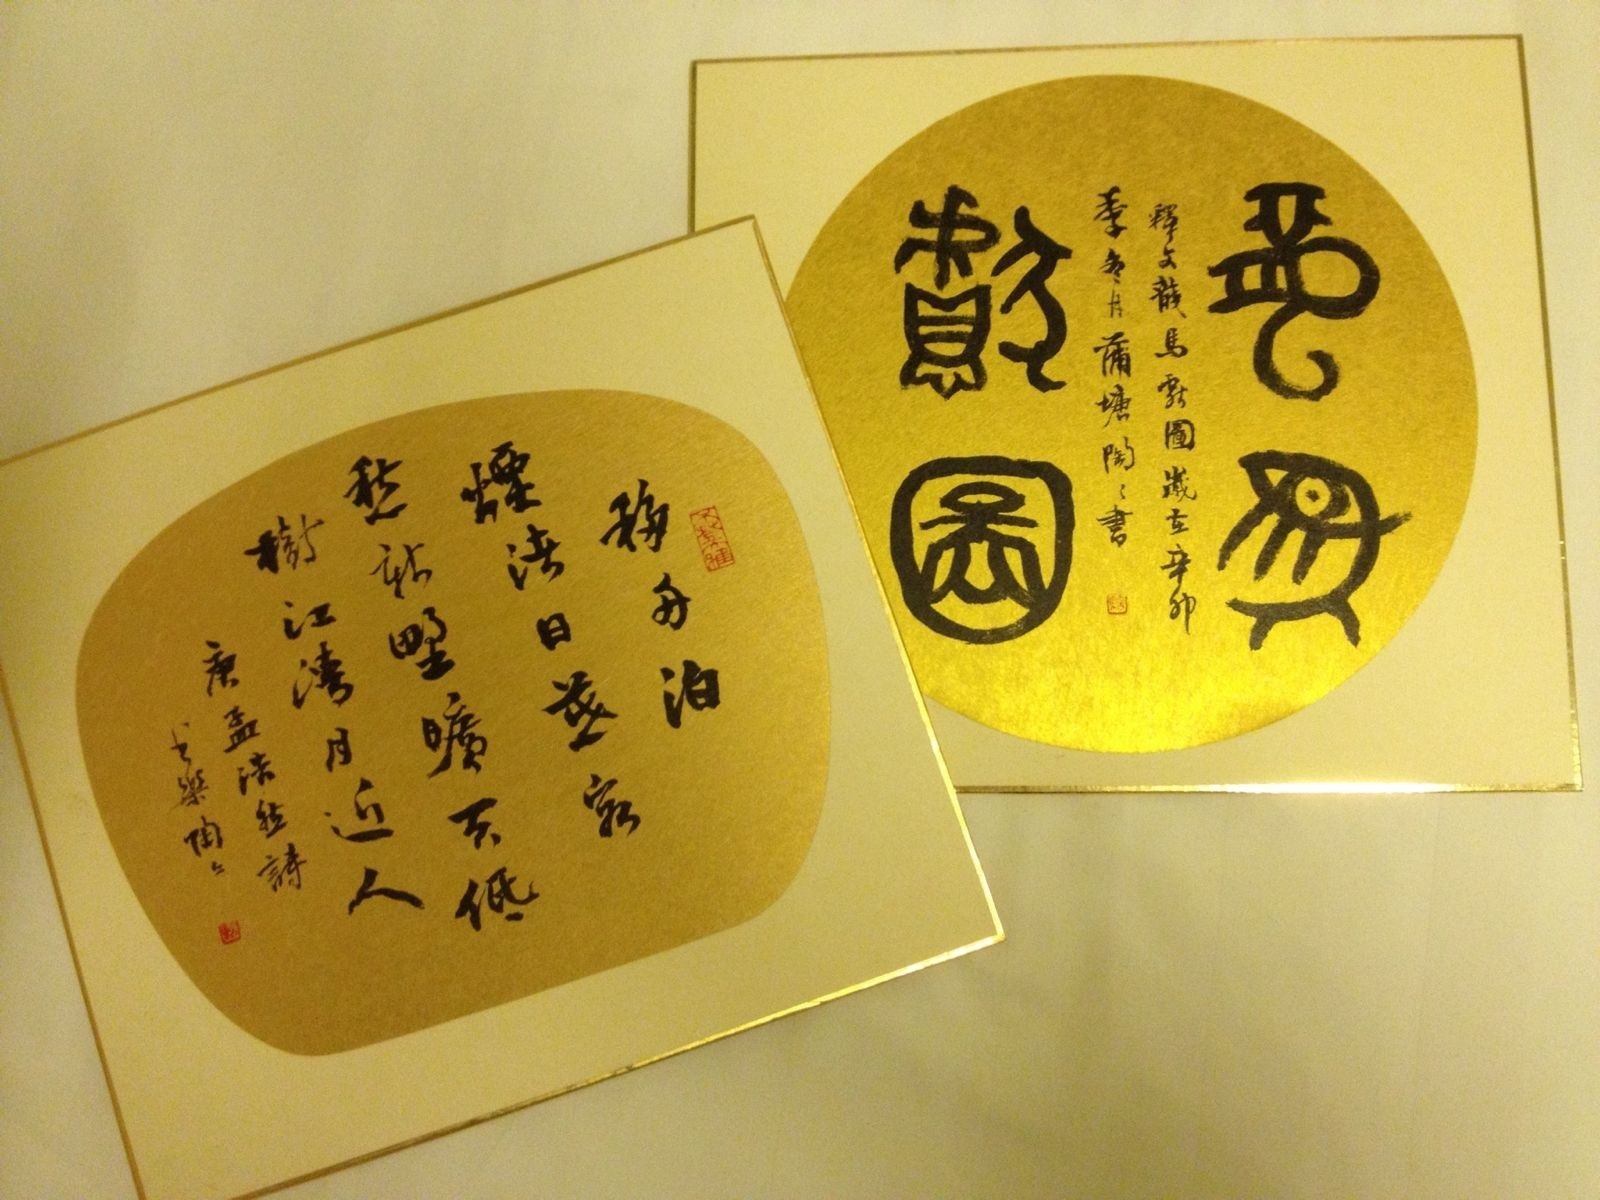 龍馬
釋文龍馬獻圖歲在辛卯
季冬月蒲塘陶〻書
獻圖
移舟泊
煙渚日暮客
愁新野曠天低
樹江清月近人
唐孟浩然詩
樂陶〻